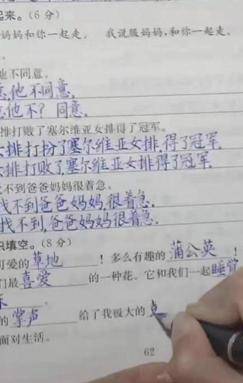 起来。(6分)
妈妈和你一起走。 我说服妈妈,
他不同意。
他不同意。
他不?同意。
排打败了塞尔维亚女排得了冠军。
女排打扮了塞尔维亚女排,得了冠军
女排打败了塞尔维亚女排,得了冠军
找不到爸爸妈妈很着急。
找不到爸爸妈妈,很着急。
找不到,爸爸妈妈很着急。
填空。(8分)
可爱的草地!多么有趣的蒲公英!
们最喜爱的一种花。它和我们一起睡觉
的掌声给了我极大的
面对生活。
62